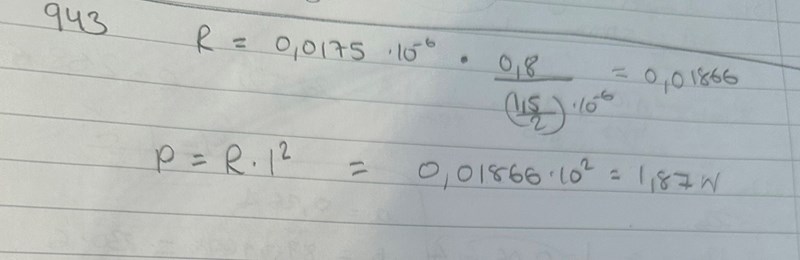 943
R = 0,0175 · 10⁻⁶ · 0,8 / (1,5/2) · 10⁻⁶ = 0,01866
P = R · I² = 0,01866 · 10² = 1,87 W